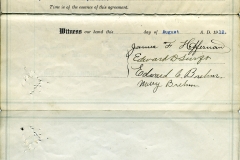 Time is of the essence of this agreement.
Witness our hand this day of August A. D. 1922.
James F. Heffernan
Edward D
Edward A. Brehm
Mary Brehm